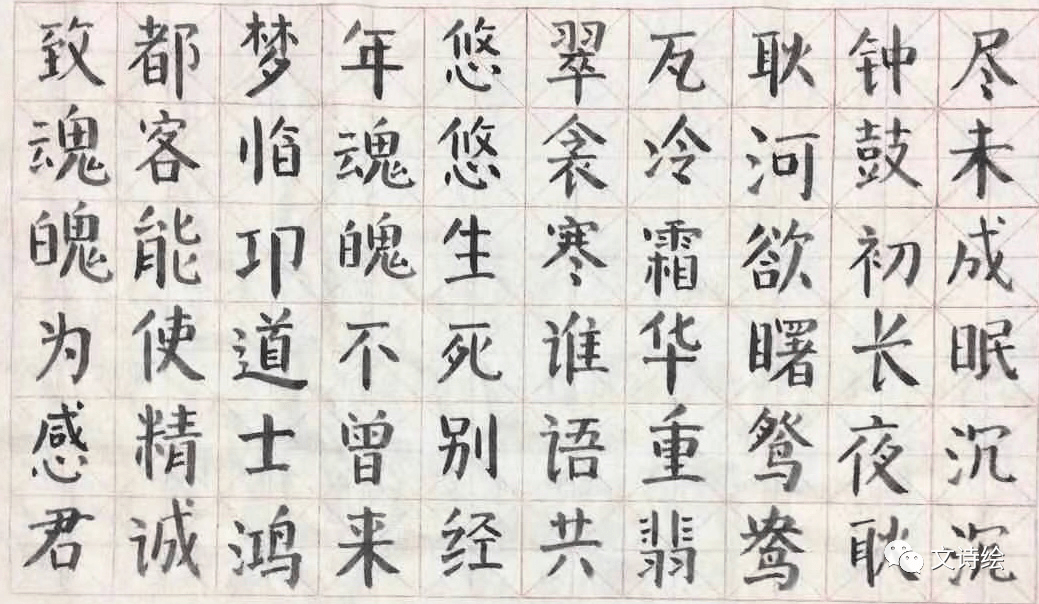 尽未成眠沉沉
钟鼓初长夜耿
耿河欲曙鸳鸯
瓦冷霜华重翡
翠衾寒谁语共
悠悠生死别经
年魂魄不曾来
梦临卭道士鸿
都客能使精诚
致魂魄为感君
文诗绘